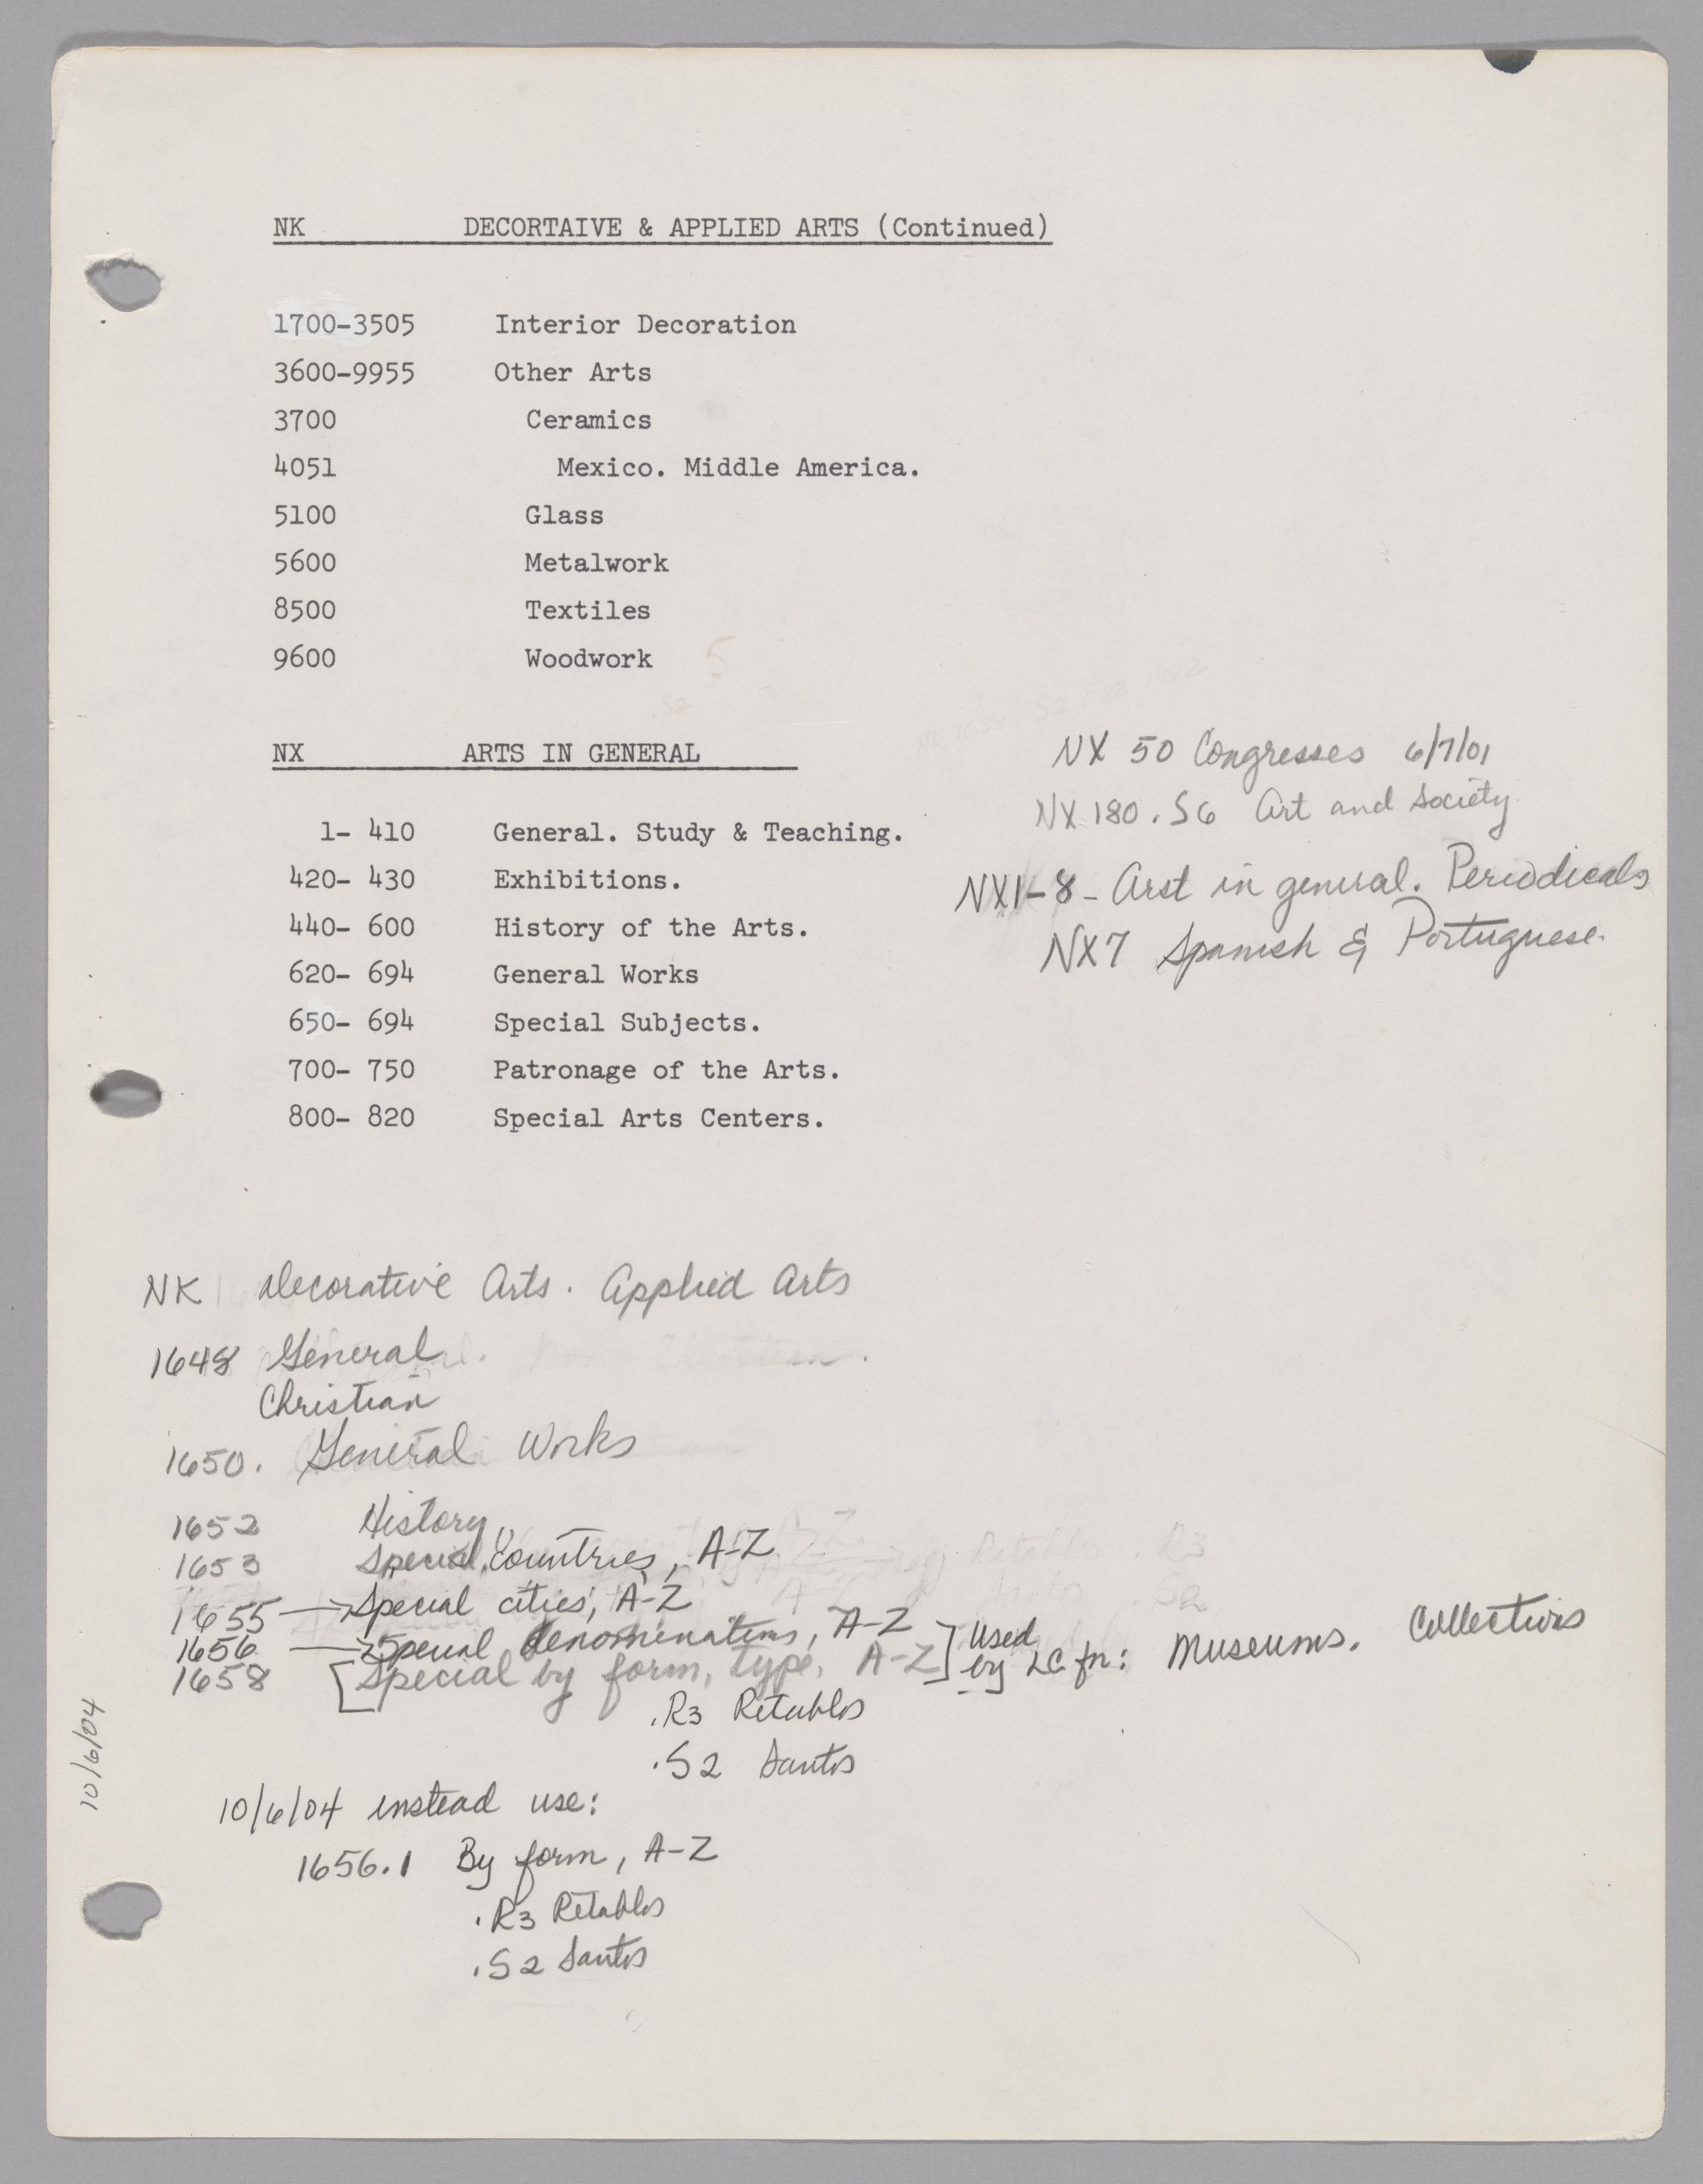 NK DECORTAIVE & APPLIED ARTS (Continued)
1700-3505 Interior Decoration
3600-9955 Other Arts
3700 Ceramics
4051 Mexico. Middle America.
5100 Glass
5600 Metalwork
8500 Textiles
9600 Woodwork
NX ARTS IN GENERAL
1- 410 General. Study & Teaching.
420- 430 Exhibitions.
440- 600 History of the Arts.
620- 694 General Works
650- 694 Special Subjects.
700- 750 Patronage of the Arts.
800- 820 Special Arts Centers.
NX 50 Congresses 6/7/01
NX 180.S6 Art and Society
NX1-8 - Arst in general. Periodicals
NX7 Spanish & Portuguese.
NK Decorative Arts. Applied Arts
1648 General
Christian
1650. General Works
1652 History
1653 Special Countries, A-Z
1655 → Special cities, A-Z
1656 → Special denominations, A-Z
1658 [Special by form, type, A-Z] Used by LC for: Museums. Collections
.R3 Retablos
.S2 Santos
10/6/04
10/6/04 instead use:
1656.1 By form, A-Z
.R3 Retablos
.S2 Santos